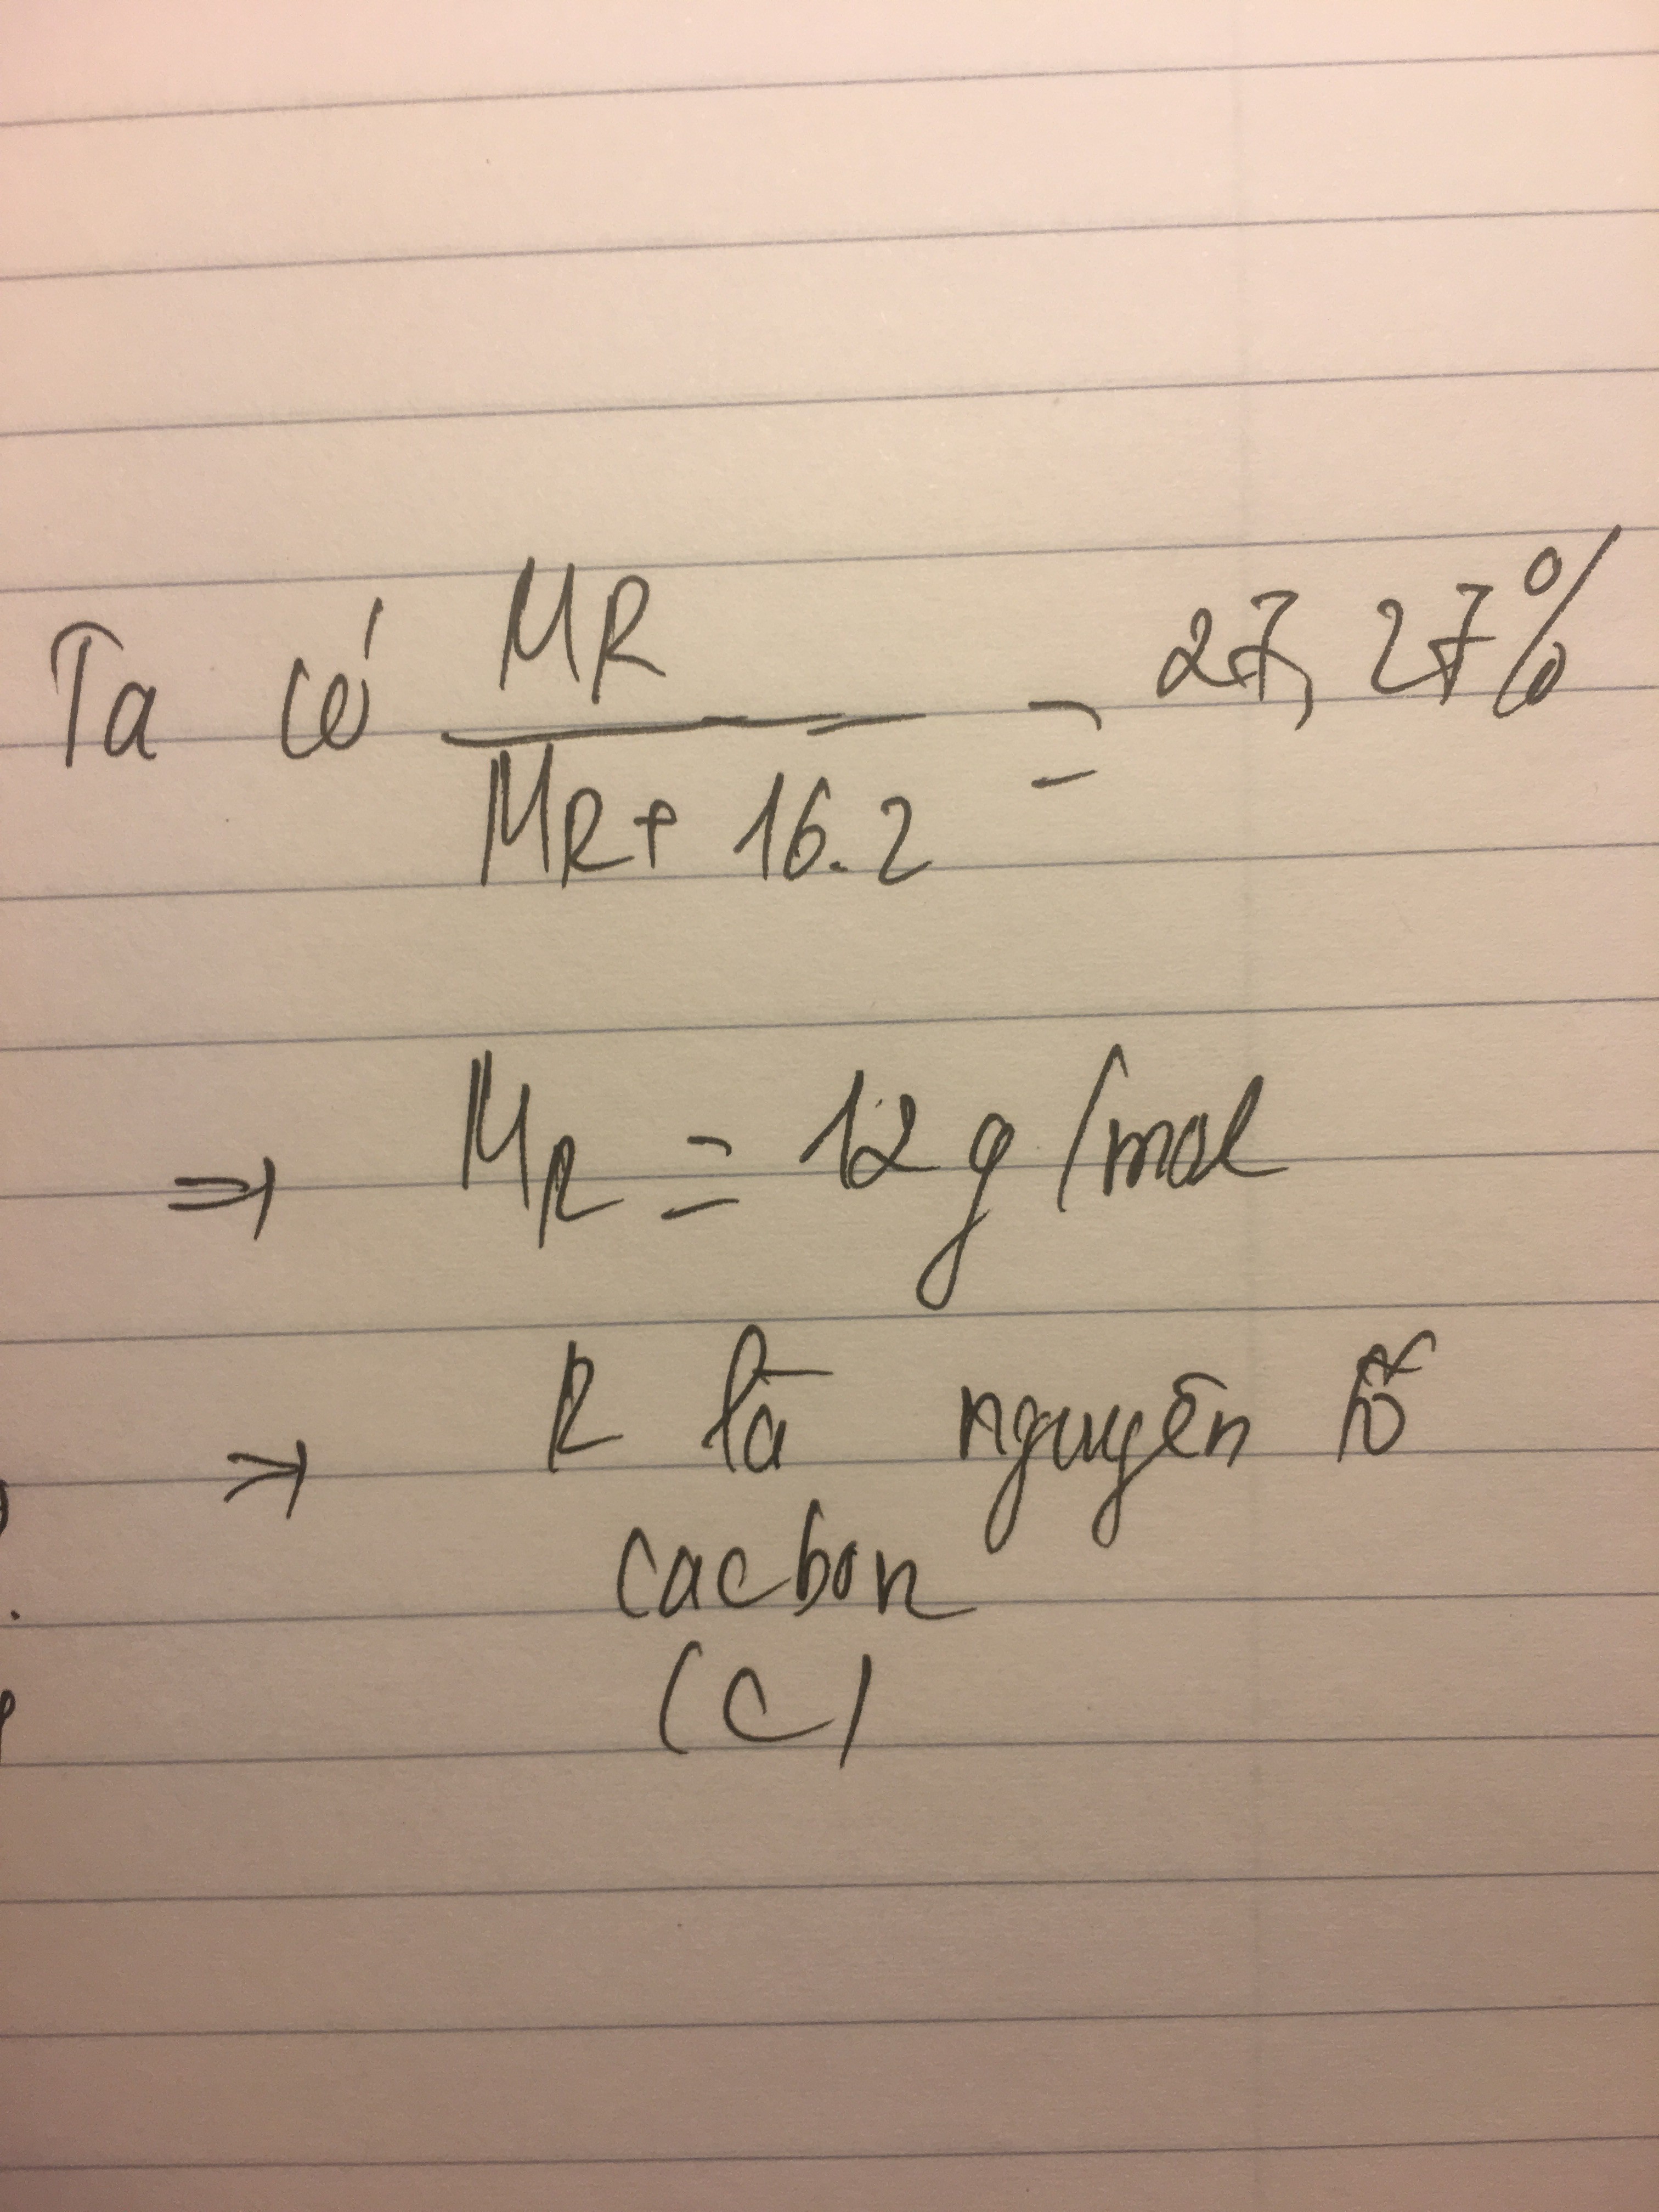 Ta có MR / MR + 16.2 = 27,27%
⇒ MR = 12 g/mol
→ R là nguyên tố
cacbon
(C)